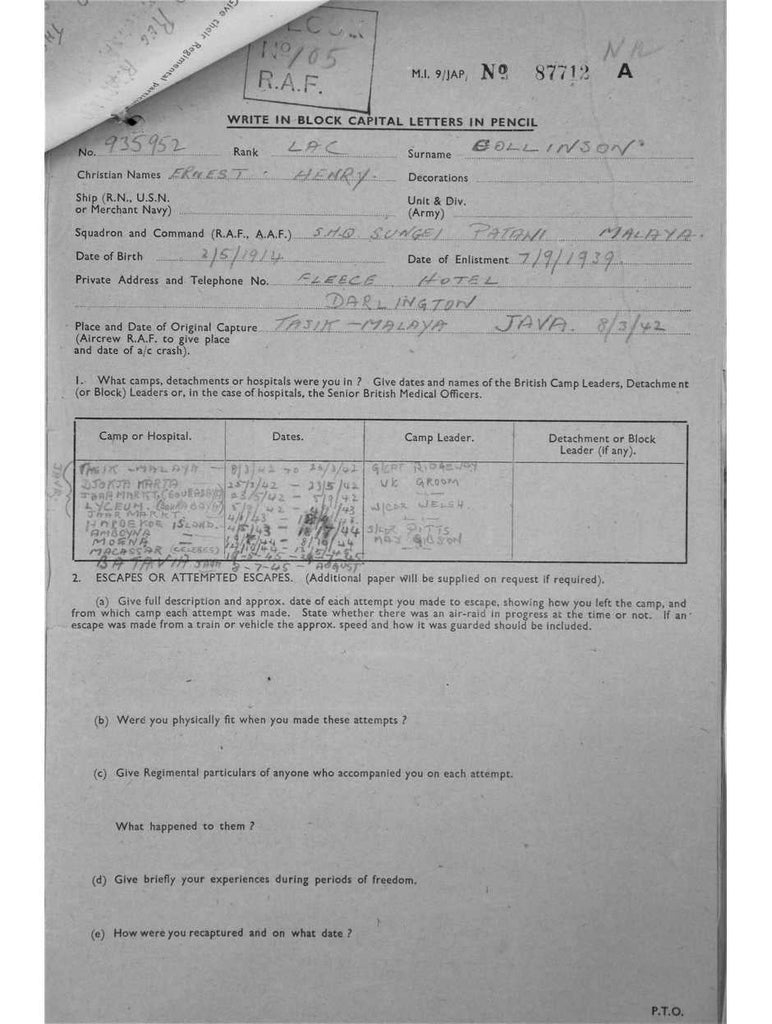 Give their Regimental
No/105
R.A.F.
M.I. 9/JAP/ No 87712 A
WRITE IN BLOCK CAPITAL LETTERS IN PENCIL
No. 935952 Rank LAC Surname BOLLINSON
Christian Names ERNEST HENRY. Decorations
Ship (R.N., U.S.N.
or Merchant Navy)
Unit & Div.
(Army)
Squadron and Command (R.A.F., A.A.F.) SHQ SUNGEI PATANI MALAYA.
Date of Birth 2/5/1914 Date of Enlistment 7/9/1939.
Private Address and Telephone No. FLEECE HOTEL
DARLINGTON
Place and Date of Original Capture TASIK-MALAYA JAVA. 8/3/42
(Aircrew R.A.F. to give place
and date of a/c crash).
1. What camps, detachments or hospitals were you in ? Give dates and names of the British Camp Leaders, Detachment
(or Block) Leaders or, in the case of hospitals, the Senior British Medical Officers.
Camp or Hospital. Dates. Camp Leader. Detachment or Block
Leader (if any).
JAVA
TASIK-MALAYA - 8/3/42 TO G/CPT RIDGEWAY
DJOKJA KARTA - 23/5/42 GROOM
JAAR MARKT 23/5/42 -
LYCEUM. W/CDR WELSH.
JAAR MARKT.
HAROEKOE ISLAND. 4/5/43 - S/LDR PITTS
AMBOYNA MAJ GIBSON
MOENA 8/10/44
MACASSAR (CELEBES)
BATAVIA JAVA - AUGUST
2. ESCAPES OR ATTEMPTED ESCAPES. (Additional paper will be supplied on request if required).
(a) Give full description and approx. date of each attempt you made to escape, showing how you left the camp, and
from which camp each attempt was made. State whether there was an air-raid in progress at the time or not. If an
escape was made from a train or vehicle the approx. speed and how it was guarded should be included.
(b) Were you physically fit when you made these attempts ?
(c) Give Regimental particulars of anyone who accompanied you on each attempt.
What happened to them ?
(d) Give briefly your experiences during periods of freedom.
(e) How were you recaptured and on what date ?
P.T.O.